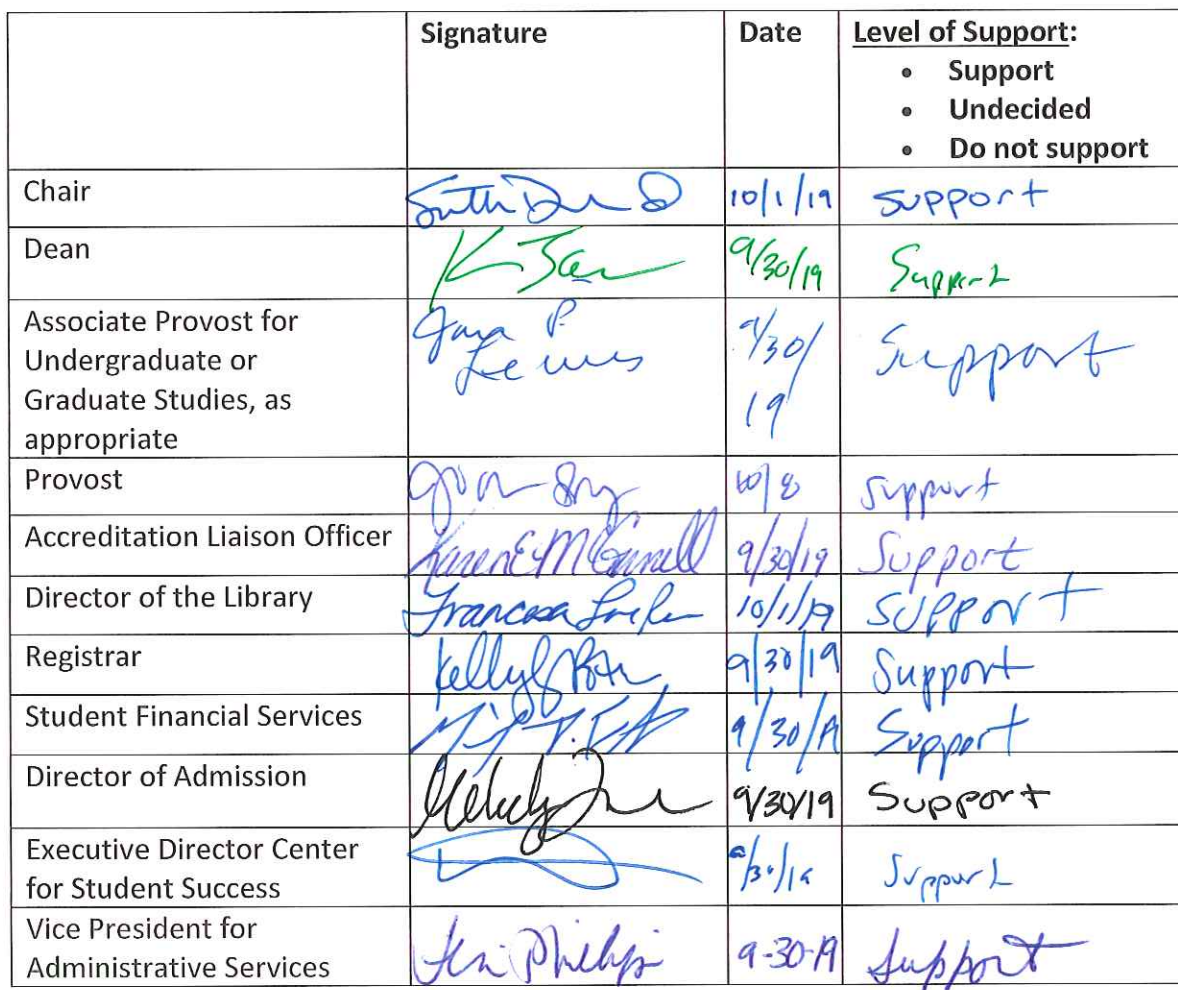 Signature Date Level of Support:
• Support
• Undecided
• Do not support
Chair 10/1/19 Support
Dean 9/30/19 Support
Associate Provost for
Undergraduate or
Graduate Studies, as
appropriate P. Lewis 9/30/19 Support
Provost 10/8 Support
Accreditation Liaison Officer Karen E. McConnell 9/30/19 Support
Director of the Library Francesca 10/1/19 Support
Registrar Kelly 9/30/19 Support
Student Financial Services 9/30/19 Support
Director of Admission 9/30/19 Support
Executive Director Center
for Student Success Support
Vice President for
Administrative Services Phillips 9-30-19 Support